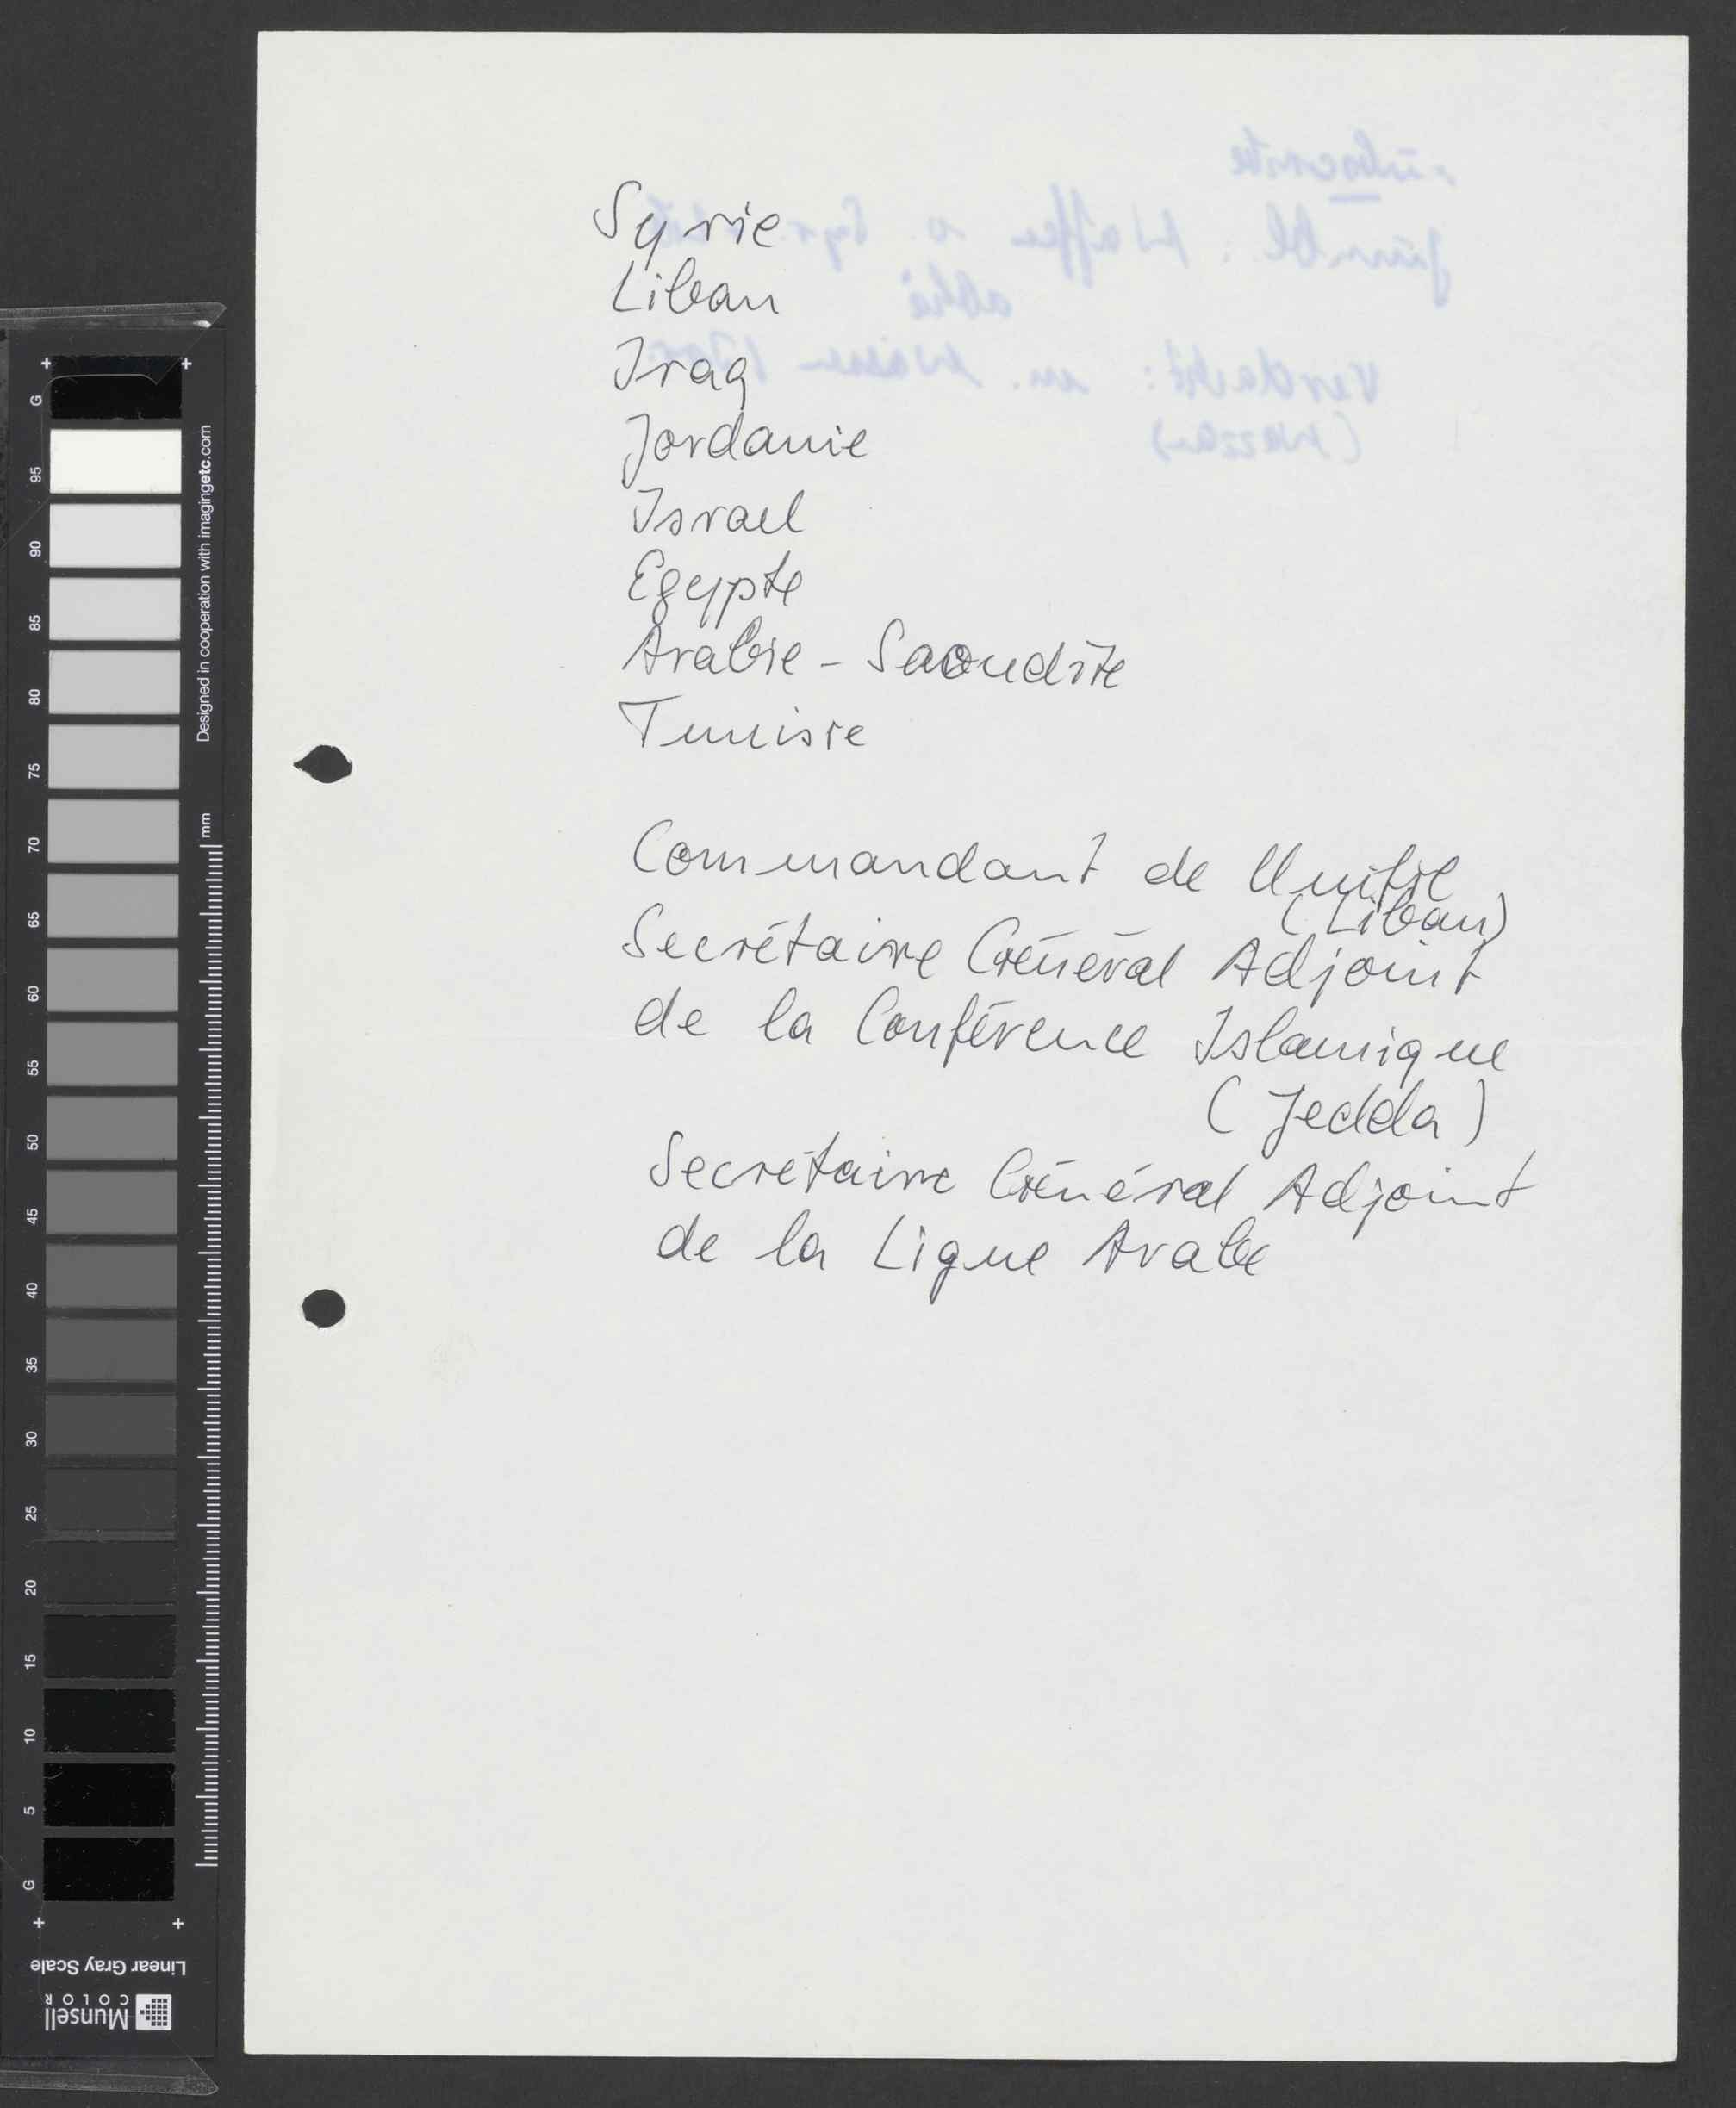 Syrie
Liban
Iraq
Jordanie
Israel
Egypte
Arabie - Saoudite
Tunisie
Commandant de Unifil
(Liban)
Secrétaire Général Adjoint
de la Conférence Islamique
(Jedda)
Secrétaire Général Adjoint
de la Ligue Arabe
Designed in cooperation with imagingetc.com
mm
G
95
90
85
80
75
70
65
60
55
50
45
40
35
30
25
20
15
10
5
G
Linear Gray Scale
Munsell
COLOR